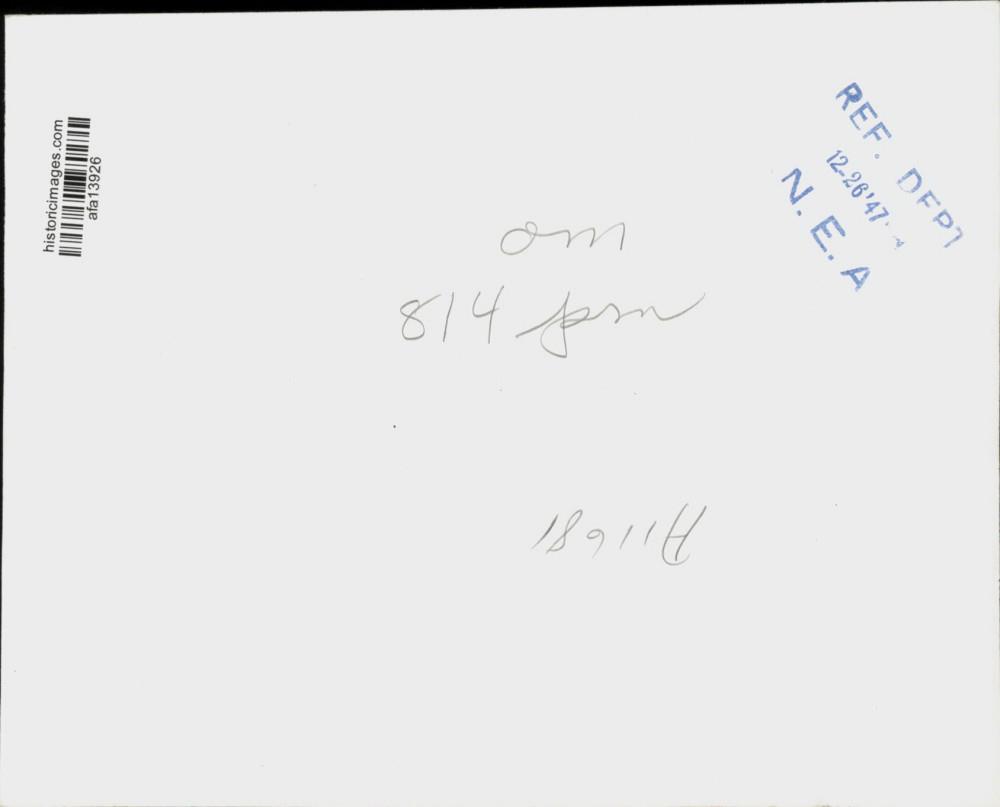 historicimages.com
afa13926
REF. DEPT
12-26'47
N. E. A
om
814 psm
A11681